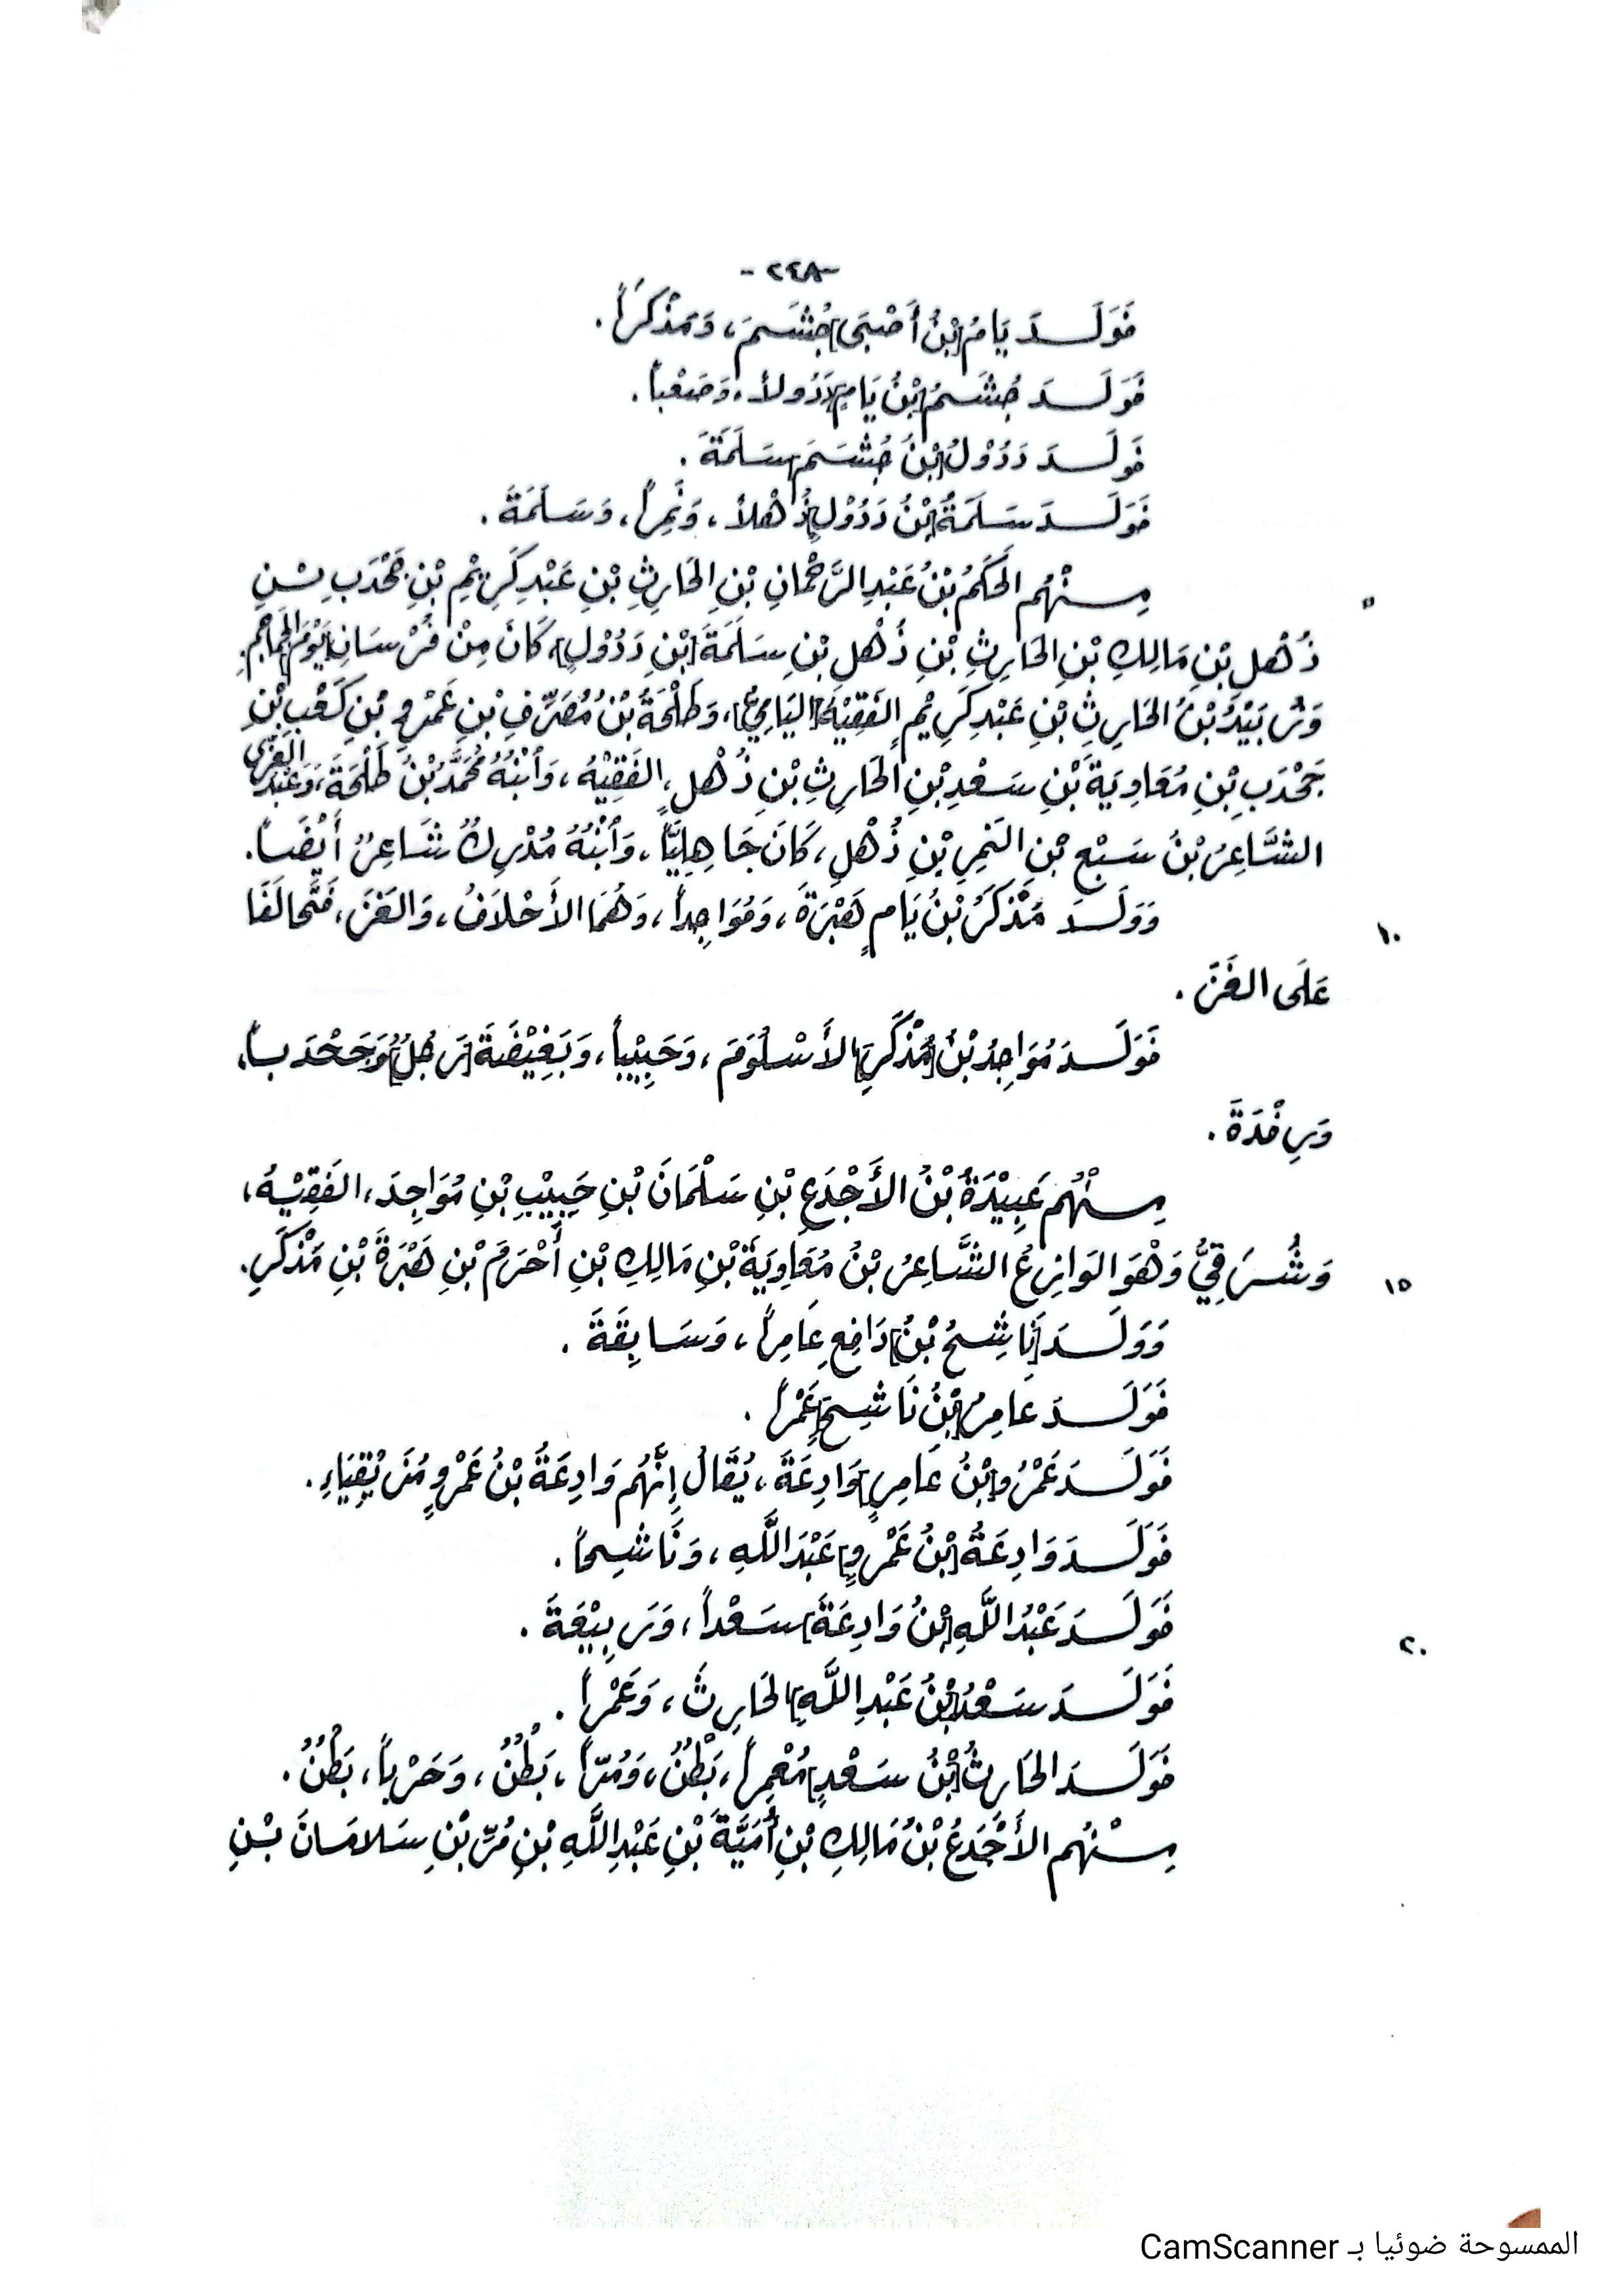 -٢٤٨-
فَوَلَدَ يَامُ [بْنُ أَصْبَى] جُشَمَ، وَمَذْكَراً.
فَوَلَدَ جُشَمُ [بْنُ يَامٍ] دَدُولاً، وَصَعْباً.
فَوَلَدَ دَدُوْلُ [بْنُ جُشَمَ] سَلَمَةَ.
فَوَلَدَ سَلَمَةُ [بْنُ دَدُوْلٍ] ذُهْلاً، وَنَمِراً، وَسَلَمَةَ.
مِنْهُم الحَكَمُ بْنُ عَبْدِ الرَّحْمانِ بْنِ الحَارِثِ بْنِ عَبْدِ كَرِيْمِ بْنِ جَحْدَبِ بْنِ ٥
ذُهْلِ بْنِ مَالِكِ بْنِ الحَارِثِ بْنِ ذُهْلِ بْنِ سَلَمَةَ [بْنِ دَدُوْلٍ]، كَانَ مِنْ فُرْسَانِ [يَوْمِ] الجَمَاجِمِ.
وَزُبَيْدُ بْنُ الحَارِثِ بْنِ عَبْدِ كَرِيْمٍ الفَقِيْهُ [اليَامِيُّ]، وَطَلْحَةُ بْنُ مُصَرِّفِ بْنِ عَمْرِو بْنِ كَعْبِ بْنِ
جَحْدَبِ بْنِ مُعَاوِيَةَ بْنِ سَعْدِ بْنِ الحَارِثِ بْنِ ذُهْلٍ، الفَقِيْهُ، وَابْنُهُ مُحَمَّدُ بْنُ طَلْحَةَ، وَعَبْدُ العُزَّى
الشَّاعِرُ بْنُ سَبْعِ بْنِ النَّمِرِ بْنِ ذُهْلٍ، كَانَ جَاهِلِيَّاً، وَابْنُهُ مُدْرِكٌ شَاعِرٌ أَيْضَاً.
وَوَلَدَ مَذْكَرُ بْنُ يَامٍ هَبْرَةَ، وَمُوَاجِداً، وَهُمَا الأَحْلَافُ، وَالغَزَ، فَتَحَالَفَا ١٠
عَلَى الغَزَ.
فَوَلَدَ مُوَاجِدُ بْنُ [مَذْكَرٍ] الأَسْلُوَمَ، وَحَبِيْباً، وَبَغِيْضَةَ [رَجُلٌ] وَجَحْدَباً،
وَرِفْدَةَ.
مِنْهُم عَبِيْدَةُ بْنُ الأَجْدَعِ بْنِ سَلْمَانَ بْنِ حَبِيْبِ بْنِ مُوَاجِدَ، الفَقِيْهُ،
وَشُرَقِيُّ وَهْوَ الوَازِعُ الشَّاعِرُ بْنُ مُعَاوِيَةَ بْنِ مَالِكِ بْنِ أَحْرَمَ بْنِ هَبْرَةَ بْنِ مَذْكَرٍ. ١٥
وَوَلَدَ [نَاشِحُ بْنُ] دَافِعٍ عَامِراً، وَسَابِقَةَ.
فَوَلَدَ عَامِرُ [بْنُ نَاشِحٍ] عَمْراً.
فَوَلَدَ عَمْرُو [بْنُ عَامِرٍ] وَادِعَةَ، يُقَالُ إِنَّهُم وَادِعَةُ بْنُ عَمْرٍو مُزَيْقِيَاءِ.
فَوَلَدَ وَادِعَةُ [بْنُ عَمْرٍو] عَبْدَ اللَّهِ، وَنَاشِحاً.
فَوَلَدَ عَبْدُ اللَّهِ [بْنُ وَادِعَةَ] سَعْداً، وَرَبِيْعَةَ. ٢٠
فَوَلَدَ سَعْدُ [بْنُ عَبْدِ اللَّهِ] الحَارِثَ، وَعَمْراً.
فَوَلَدَ الحَارِثُ [بْنُ سَعْدٍ] مُعْمِراً، بَطْنٌ، وَمُرّاً، بَطْنٌ، وَحَرْباً، بَطْنٌ.
مِنْهُم الأَجْدَعُ بْنُ مَالِكِ بْنِ أُمَيَّةَ بْنِ عَبْدِ اللَّهِ بْنِ مُرِّ بْنِ سَلامَانَ بْنِ
الممسوحة ضوئيا بـ CamScanner